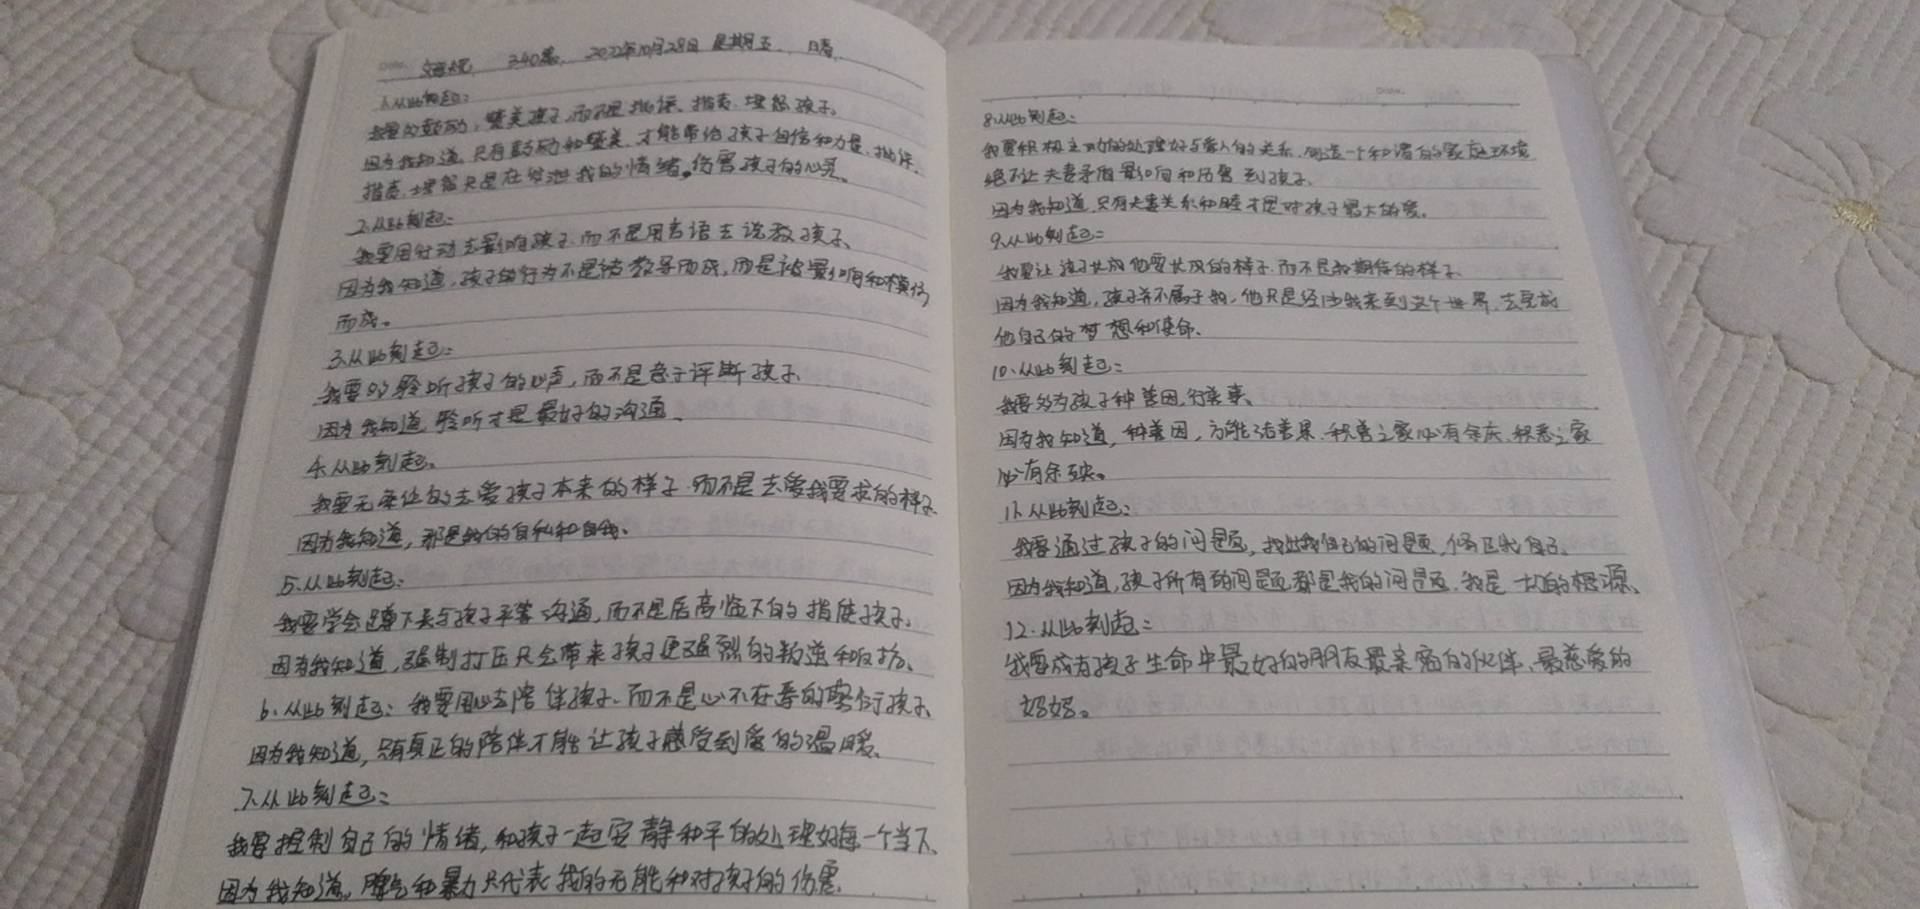 340篇 2022年10月28日 星期五 晴
1.从此刻起:
我要多鼓励,赞美孩子,而不是批评、指责、埋怨孩子。
因为我知道,只有鼓励和赞美,才能带给孩子自信和力量、批评、
指责、埋怨只是在发泄我的情绪。伤害孩子的心灵。
2.从此刻起:
我要用行动去影响孩子,而不是用言语去说教孩子、
因为我知道,孩子的行为不是被教导而成,而是被影响和模仿
而成。
3.从此刻起:
我要多聆听孩子的心声,而不是急于评断孩子、
因为我知道,聆听才是最好的沟通、
4.从此刻起。
我要无条件的去爱孩子本来的样子,而不是去爱我要求的样子、
因为我知道,那是我的自私和自我、
5.从此刻起:
我要学会蹲下来与孩子平等沟通,而不是居高临下的指使孩子、
因为我知道,强制打压只会带来孩子更强烈的叛逆和反抗、
6、从此刻起:我要用心去陪伴孩子、而不是心不在焉的敷衍孩子、
因为我知道,只有真正的陪伴才能让孩子感受到爱的温暖、
7、从此刻起:
我要控制自己的情绪,和孩子一起安静和平的处理好每一个当下、
因为我知道。脾气和暴力只代表我的无能和对孩子的伤害
8.从此刻起:
我要积极主动的处理好与爱人的关系、创造一个和谐的家庭环境
绝不让夫妻矛盾影响和伤害到孩子、
因为我知道,只有夫妻关系和睦才是对孩子最大的爱。
9.从此刻起:
我要让孩子长成他要长成的样子,而不是我期待的样子
因为我知道,孩子并不属于我,他只是经由我来到这个世界、去完成
他自己的梦想和使命、
10、从此刻起:
我要多为孩子种善因,行善事、
因为我知道,种善因,方能结善果、积善之家必有余庆、积恶之家
必有余殃。
11、从此刻起:
我要通过孩子的问题,找出我自己的问题,修正我自己、
因为我知道,孩子所有的问题都是我的问题、我是一切的根源、
12.从此刻起:
我要成为孩子生命中最好的朋友最亲密的伙伴、最慈爱的
妈妈。